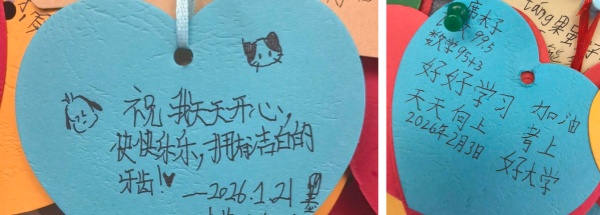 祝我天天开心,
快快乐乐,拥有洁白的
牙齿!
—2026.1.21
99.5
数学95+3
好好学习
天天向上
2026年2月3日
加油
考上
好大学
tang果